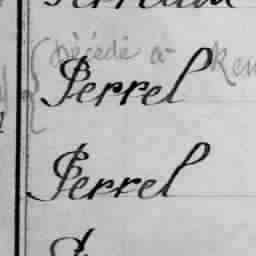 décédé à Ren
Perrel
Perrel